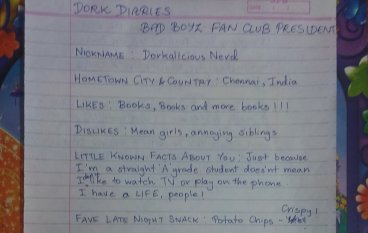 DORK DIARIES
BAD BOYZ FAN CLUB PRESIDENT
NICKNAME : Dorkalicious Nerd
HOMETOWN CITY & COUNTRY : Chennai, India
LIKES : Books, Books and more books !!!
DISLIKES : Mean girls, annoying siblings
LITTLE KNOWN FACTS ABOUT YOU : Just because
I'm a straight 'A' grade student doesn't mean
I don't like to watch TV or play on the phone
I have a LIFE, people!
FAVE LATE NIGHT SNACK : Potato Chips - Crispy!